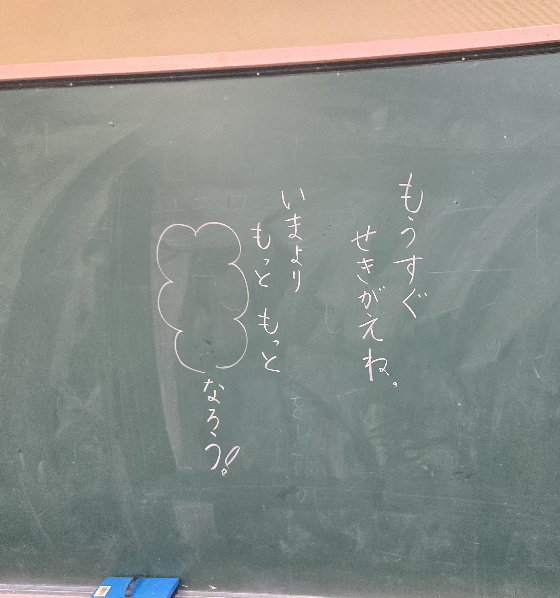 もうすぐ
せきがえね。
いまより
もっと もっと
なろう!